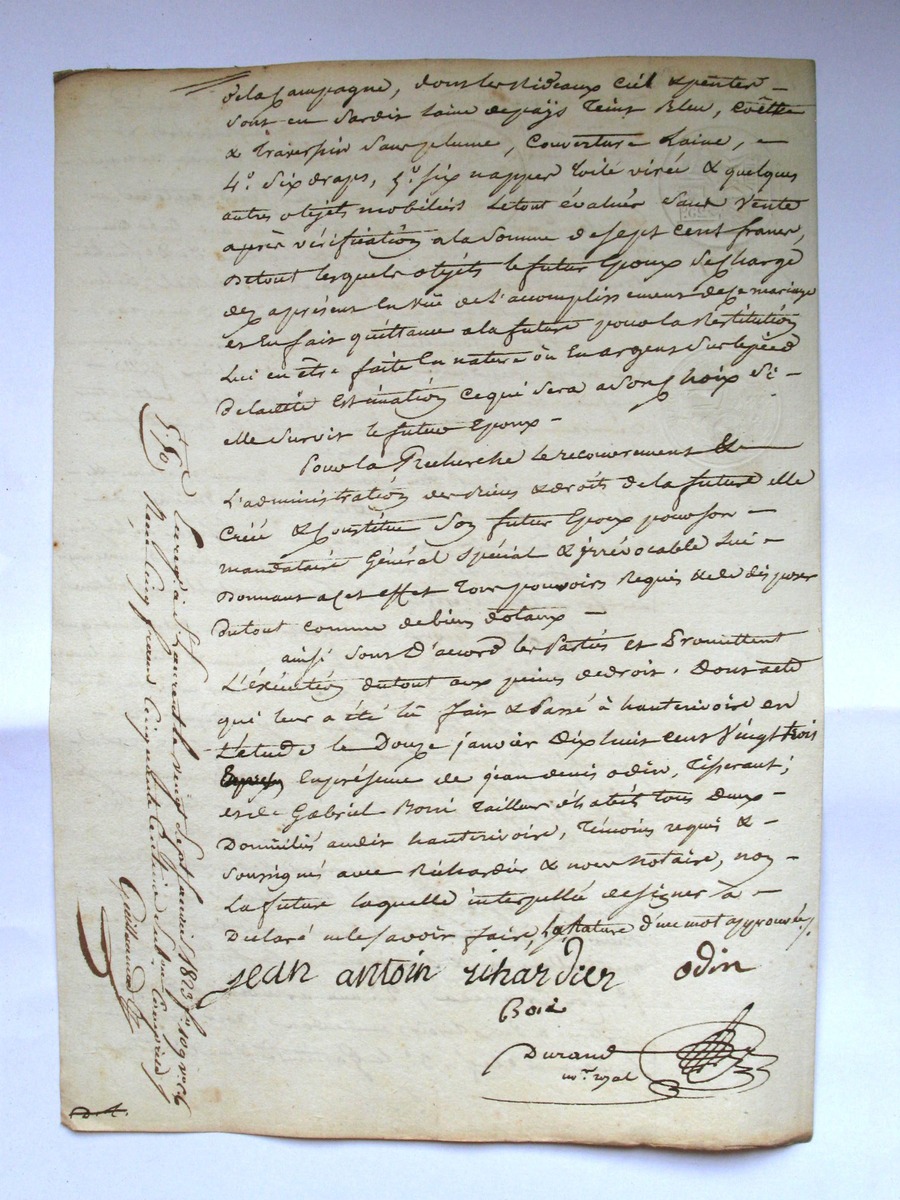 de la Campagne, dont les Rideaux Ciel & pentes
sont en Sardis laine de païs teint Bleu, coëtte
& traversin Sans plume, Couverture Laine,
4°. Six draps, 5°. six nappes toile virée & quelques
autres objets mobiliers Le tout évalué Sans Vente
après vérification a la Somme de Sept Cent francs,
Detout lesquels objets le futur Epoux Se Charge
dez aprésent En vüe de l'accomplissement de Ce mariage
et En fait quittance a la future pour la Restitution
Lui en être faite En nature ou En argent Sur le pied
De la dite Estimation Ce qui Sera a Son Choix Si
elle Survit le futur Epoux
Pour la Recherche le recouvrement &
L'administration des Biens & droits de la future elle
Créé & Constitue Son futur Epoux pour son
mandataire Général Spécial & irrévocable Lui
Donnant a Cet effet tous pouvoirs Requis & de disposer
Du tout comme de biens dotaux
ainsi Sont D'accord les Parties et Promettent
L'exécution du tout aux peines de droit. Dont acte
qui leur a été lû fait & Passé à hauterivoire en
L'etude le Douze janvier Dix huit cent Vingt trois
En présence de jean denis odin, Tisserant;
et de Gabriel Boni tailleur d'habits tous Deux
Domiciliés audit hauterivoire, témoins requis &
Soussignés avec Richardier & nous notaire, non
La future laquelle interpellée de signer a
Declaré ne le Savoir faire, La Rature d'un mot approuvée.
jean antoin richardier odin
Boni
Durand
no.re royal
Enreg.é à St Laurent le vingt Sept janvier 1823 f° 109 v° C.
Reçu Cinq francs Cinquante Centimes
D. 4.